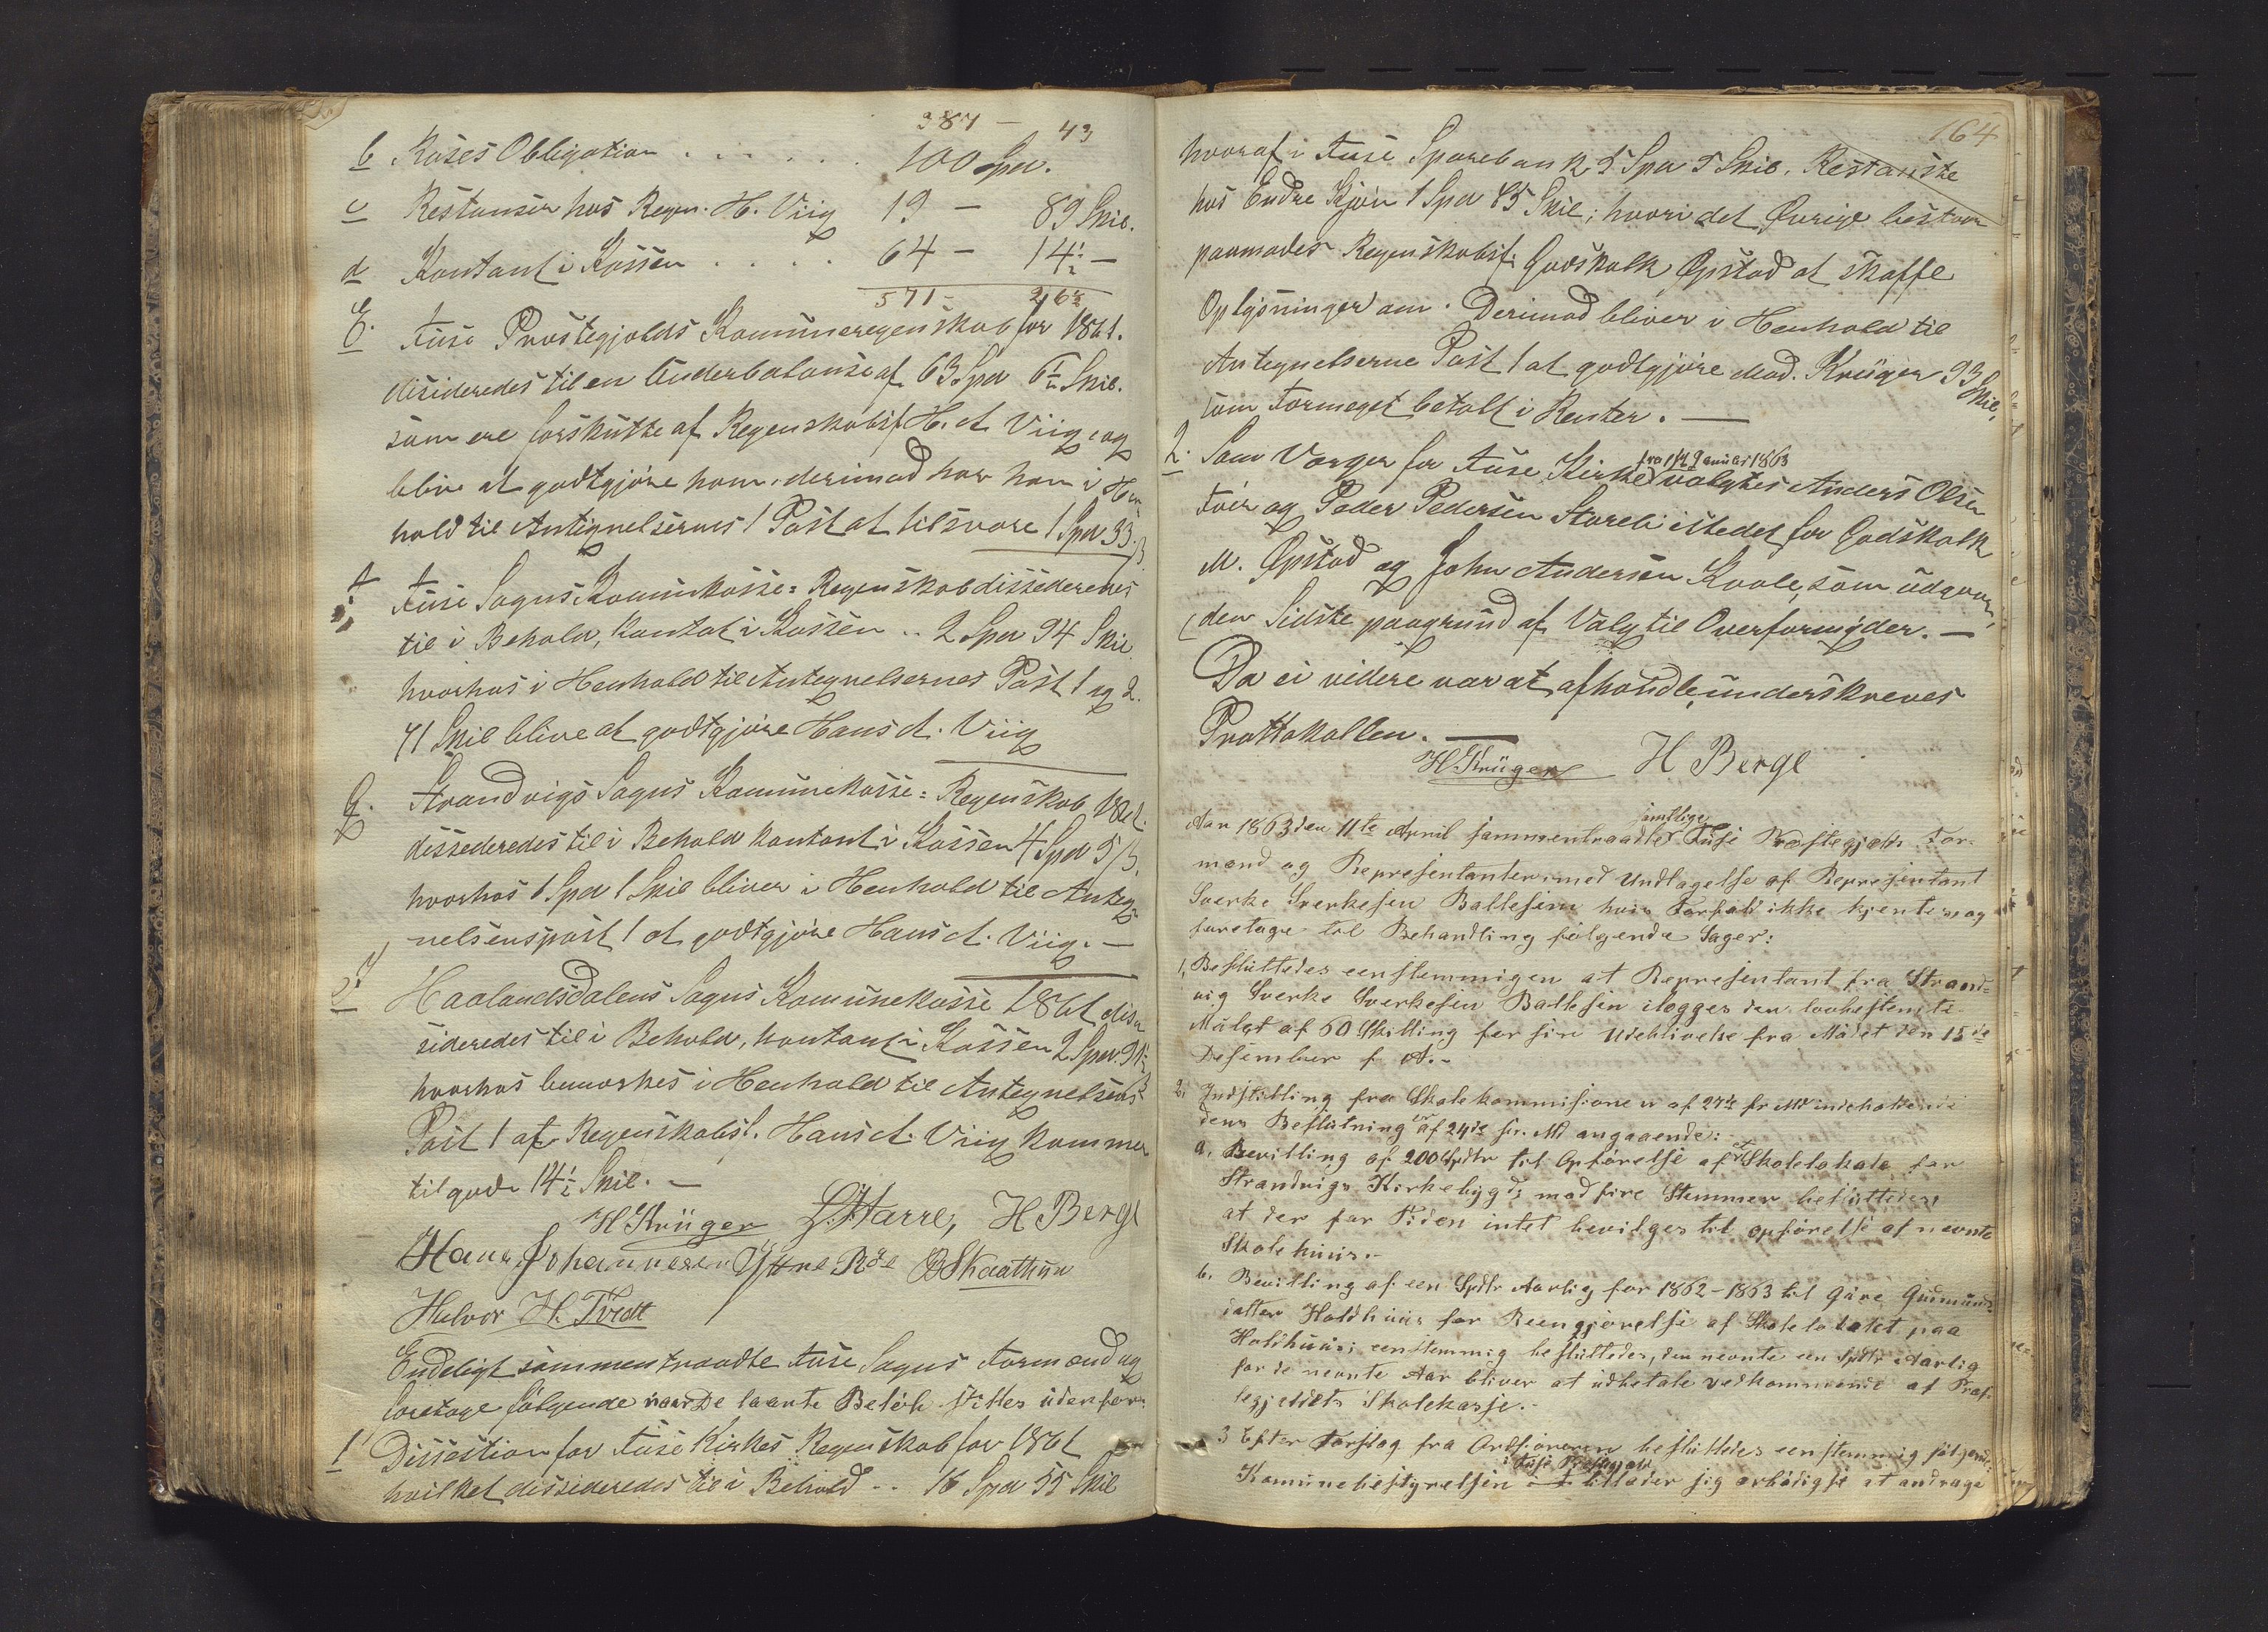 387 - 43
b Roses Obligation . . . . . . 100 Spd.
c Restanser hos Regn. H. Viig 19 - 89 Skil.
d Kontant i Kassen . . . . 64 - 14½ -
571 - 26½
E. Fuse Prestegjelds Komuneregenskab for 1861.
disideredes til en Underbalanse af 63 Spd 6½ Skil.
som ere forskutte af Regenskabsf. H. A. Viig, og
blive at godtgjøre ham, derimod har han i Hen¬
hold til Antegnelsernes 1 Post at tilsvare 1 Spd 33 ß
F. Fuse Sogns Komunkasse= Regenskab dissideredes
til i Behold, kontat i Kassen .. 2 Spd 94 Skil
hvorhos i Henhold til Antegnelsernes Post 1 og 2.
71 Skil blive at godtgjøre Hans A. Viig
G. Strandvigs Sogns Komunekasse= Regenskab 1861.
dissederedes til i Behold kontant i Kassen 4 Spd 5 ß.
hvorhos 1 Spd 1 Skil bliver i Henhold til Anteg¬
nelsenspost 1 at godtgjøre Hans A. Viig. —
Haalandsdalens Sogns Komunekasse 1861 dis¬
sideredes til i Behold, kontant i Kassen 2 Spd. 91½
hvorhos bemærkes i Henhold til Antegnelsens
Post 1 at Regenskabsf. Hans A. Viig kommer
tilgode 14½ Skil. —
H Krüger L. Harre, H Berge
Hans Johannesen Yttre Røe O Skaathun
Halvor H. Tvedt
Endeligt sammentraadte Fuse Sogns Formænd og
foretoge følgende naar De laante Beløb sættes udenfor:
1 Dissestion for Fuse Kirkes Regenskab for 1861
hvilket dissideredes til i Behold .. 16 Spd 55 Skil
164
hvoraf i Fuse Sparebank 5 Spd 5 Skil, Restanske
hos Endre Kjøn 1 Spd 85 Skil; hvori det Øvrige bestaar
paamodes Regenskabsf: Godskalk Øpstad at skaffe
Oplysninger om. Derimod bliver i Henhold til
Antegnelserne Post 1 at godtgjøre Mad. Krüger 93 Skil,
som Formeget betalt i Renter. —
2. Som Værger for Fuse Kirke fra 1ste Januar 1863 valgtes Anders Olsen
og Peder Pedersen Storeli istedet for Godskalk
M. Øpstad og John Andersen Koole, som udgaar,
(den Sidste paagrund af Valg til Overformynder. —
Da ei videre var at afhandle, underskreves
Prottokollen. —
H Krüger H Berge
Aar 1863 den 11te April sammentraadte samtlige Fuse Præstegjelds For¬
mænd og Representanter med Undtagelse af Representant
Sverke Sverkesen Baltesen hvis Forfald ikke kjentes og
foretoge til Behandling følgende Sager:
1, Besluttedes eenstemmigen at Representant fra Strand=
vig Sverke Sverkesen Baltesen ilægges den lovbestemte
Mulgt af 60 Skilling for sin Udeblivelse fra Mødet den 15de
Desember f. A.-
2. Indstilling fra Skolekommisionen af 27de f. Md indeholdende
dens Beslutning af 24de f. Md angaaende:
a, Bevilling af 200 Spdlr til Opførelse af et Skolelokale for
Strandvigs Kirkebygd; mod fire Stemmer besluttedes
at der for Tiden intet bevilges til opførelse af nevnte
Skolehuus.-
b. Bevilling af een Spdlr Aarlig for 1862-1863 til Gure Gudmunds
datter Holdhuus for Reengjørelse af Skolelokalet paa
Holdhuus; eenstemmig besluttedes, den nevnte een Spdlr Aarlig
for de nevnte Aar bliver at udbetale vedkommende af Præs¬
tegjeldets Skolekasse.-
3 Efter Forslag fra Ordføreren besluttedes eenstemmig følgende:
Komunebestyrelsen i Fuse Præstegjeld tillader sig ærbødigst at andrage